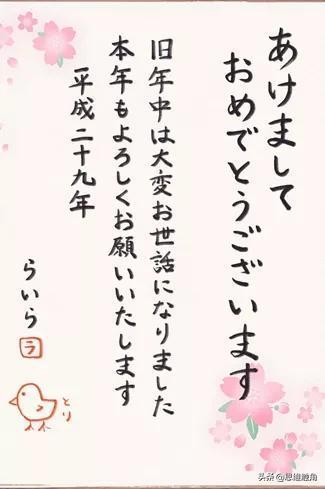 あけまして
おめでとうございます
旧年中は大変お世話になりました
本年もよろしくお願いいたします
平成二十九年
らいら
ラ
とり
头条@思维触角